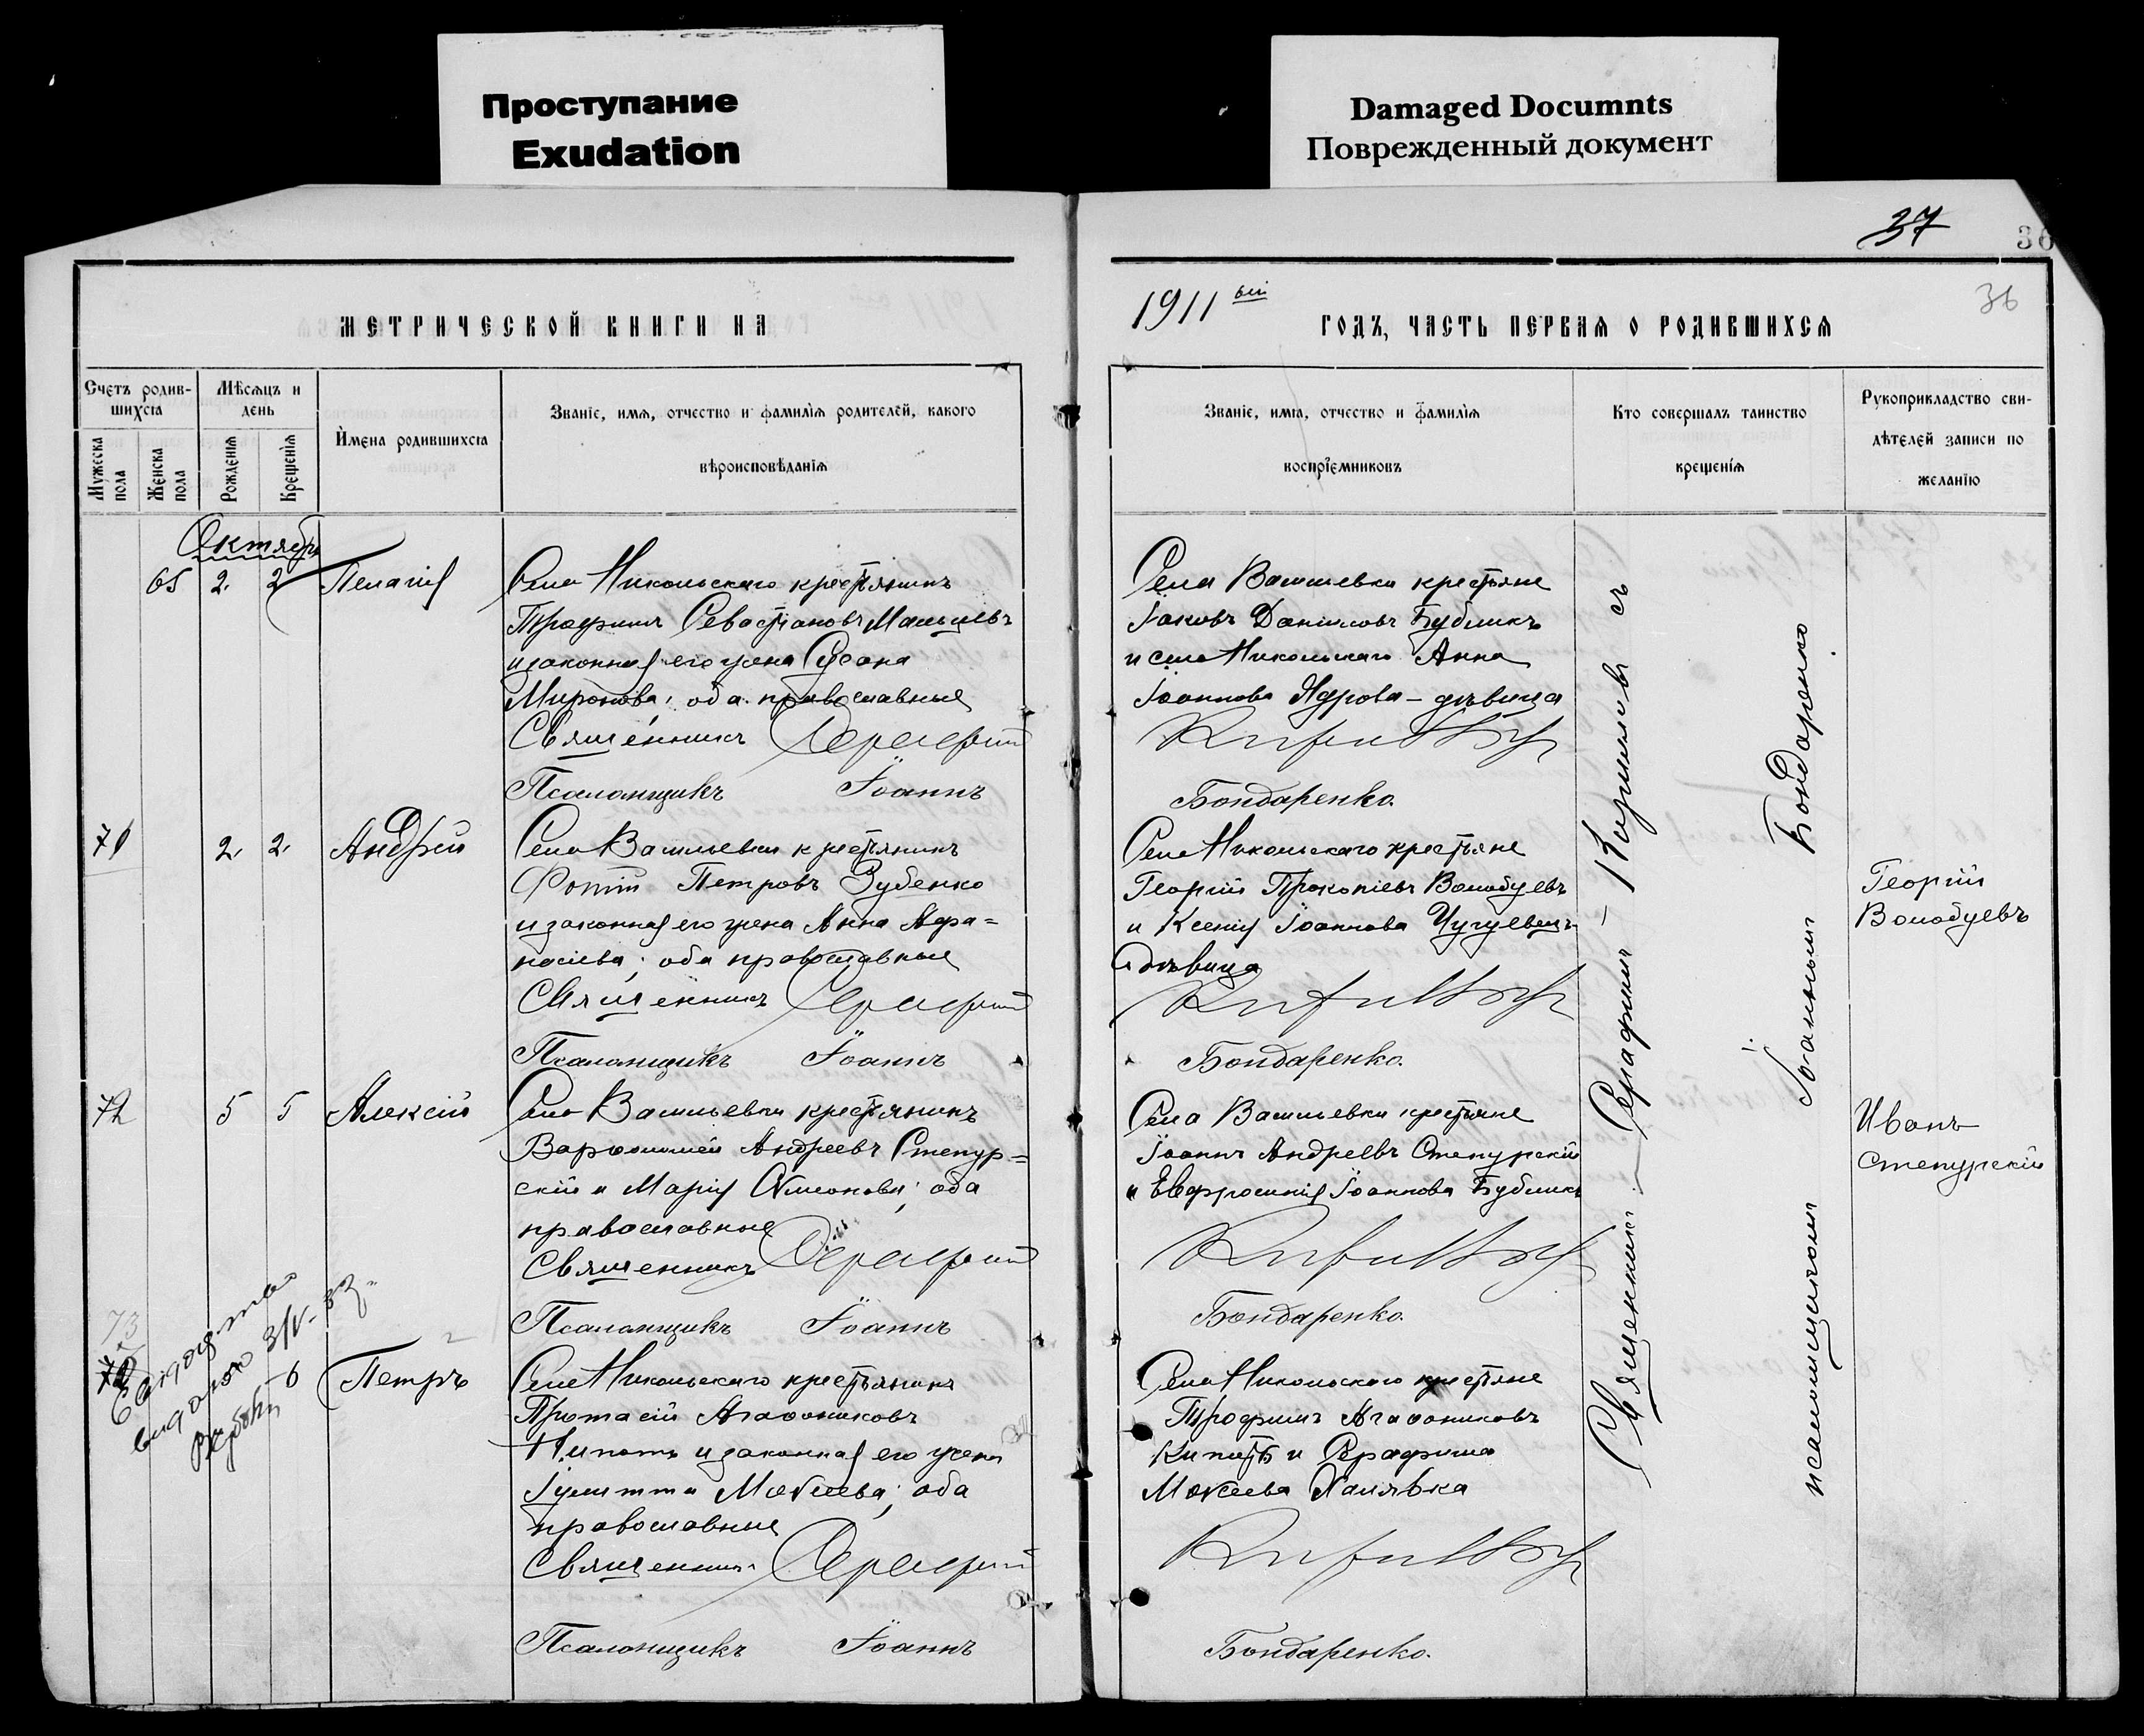 Проступание
Exudation
Damaged Documnts
Поврежденный документ
37
36
36
МЕТРИЧЕСКОЙ КНИГИ НА
1911 ый
ГОДЪ, ЧАСТЬ ПЕРВАЯ О РОДИВШИХСЯ
Счетъ родив-
шихся
Мужеска
пола
Женска
пола
Мѣсяцъ и
день
Рожденія
Крещенія
Имена родившихся
Званіе, имя, отчество и фамилія родителей, какого
вѣроисповѣданія
Званіе, имя, отчество и фамилія
воспріемниковъ
Кто совершалъ таинство
крещенія
Рукоприкладство сви-
дѣтелей записи по
желанію
Октябрь
65 2. 2 Пелагія
Села Никольскаго крестьянинъ
Трофимъ Севастіановъ Мальцевъ
и законная его жена
Миронова; оба православные
Священникъ Серафим
Псаломщикъ Іоаннъ
Села Васильевки крестьяне
Іаковъ Даниловъ Бубликъ
и села Никольскаго Анна
Іоаннова Ядрова – дѣвица
Бондаренко.
71 2. 2. Андрей
Села Васильевки крестьянинъ
Фотій Петровъ Зубенко
и законная его жена Анна Афа=
насіева; оба православные
Священникъ Серафим
Псаломщикъ Іоаннъ
Села Никольскаго крестьяне
Георгій Прокопіевъ Волобуевъ
и Ксенія Іоаннова Чугуевецъ
дѣвица
Бондаренко.
Георгій
Волобуевъ
72 5 5 Алексій
Села Васильевки крестьянинъ
Варфоломей Андреевъ Степур=
скій и Марія Симеонова; оба
православные
Священникъ Серафим
Псаломщикъ Іоаннъ
Села Васильевки крестьяне
Іоаннъ Андреевъ Степурскій
и Евфросинія Іоаннова Бубликъ
Бондаренко.
Иванъ
Степурскій
73
6 Петръ
Села Никольскаго крестьянинъ
Протасій Агафониковъ
и законная его жена
Іулитта Моѵсеева; оба
православные
Священникъ Серафим
Псаломщикъ Іоаннъ
Села Никольскаго крестьяне
Трофимъ Агафониковъ
Кипоть и Серафима
Моѵсеева Халявка
Бондаренко.
Священникъ – Серафимъ –
съ
псаломщикомъ Іоанномъ Бондаренко